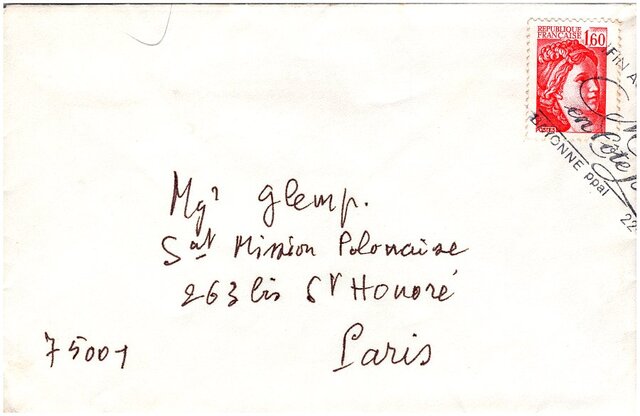 REPUBLIQUE
FRANCAISE
1,60
FIN A
en Côte
BAYONNE ppal
22
Mgr Glemp.
Sat Mission Polonaise
263 bis St Honoré
75001 Paris